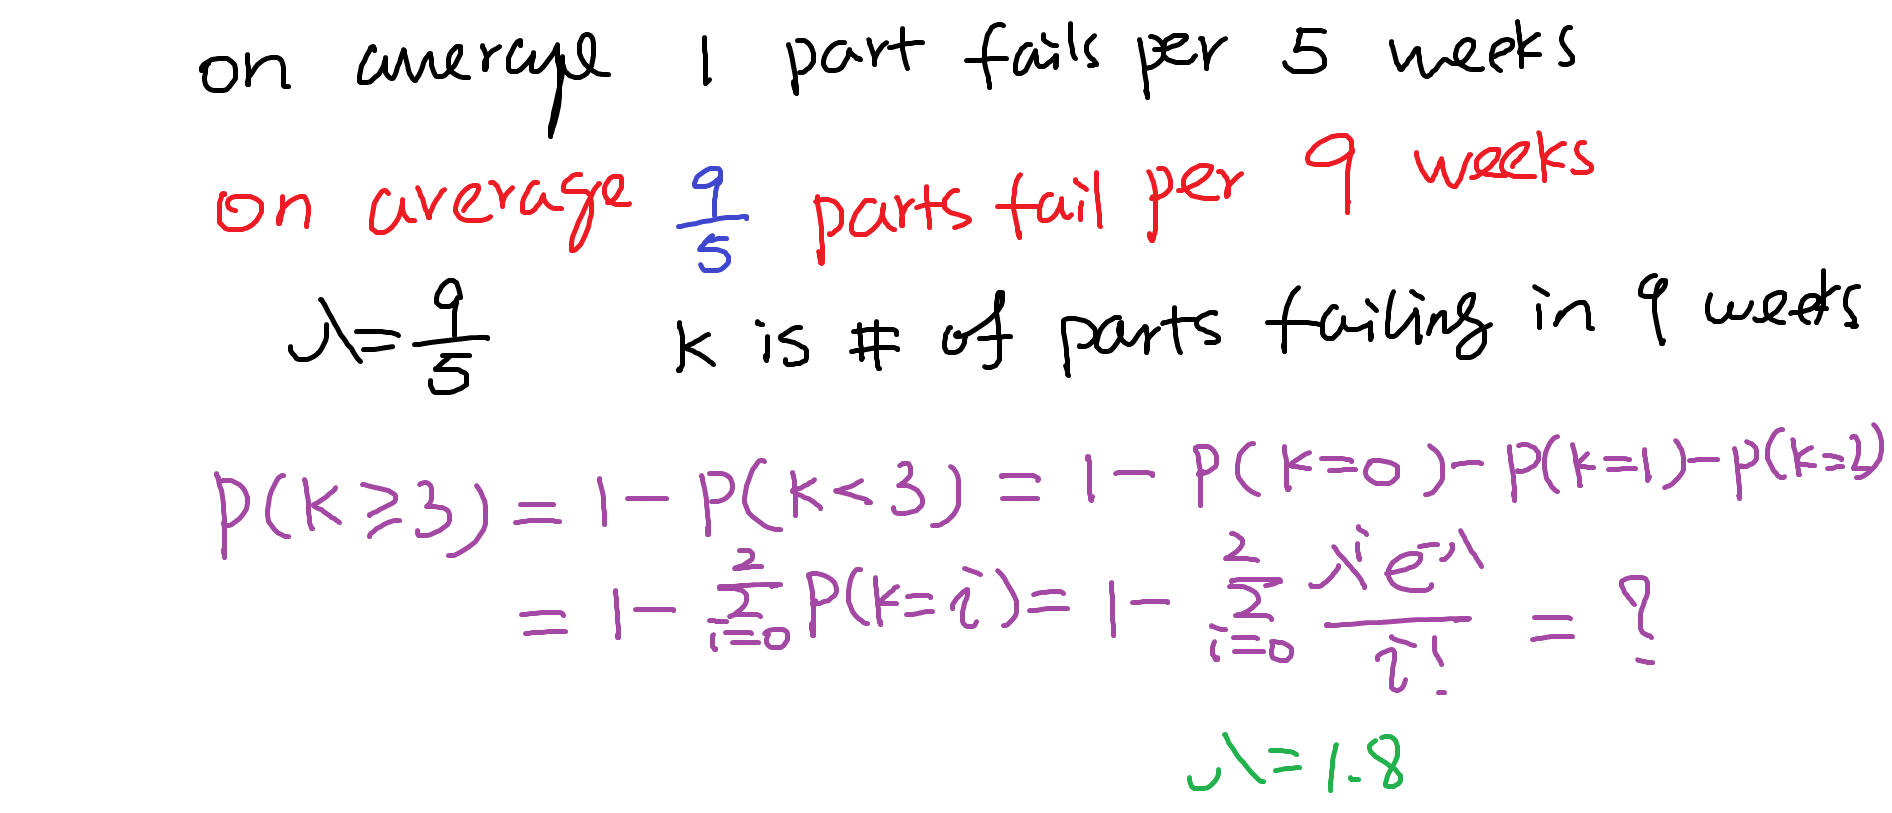 on average 1 part fails per 5 weeks
on average 9/5 parts fail per 9 weeks
λ = 9/5 k is # of parts failing in 9 weeks
P(k ≥ 3) = 1 − P(k < 3) = 1 − P(k=0) − P(k=1) − P(k=2)
= 1 − ∑_{i=0}^{2} P(k=i) = 1 − ∑_{i=0}^{2} λ^i e^{−λ} / i! = ?
λ = 1.8